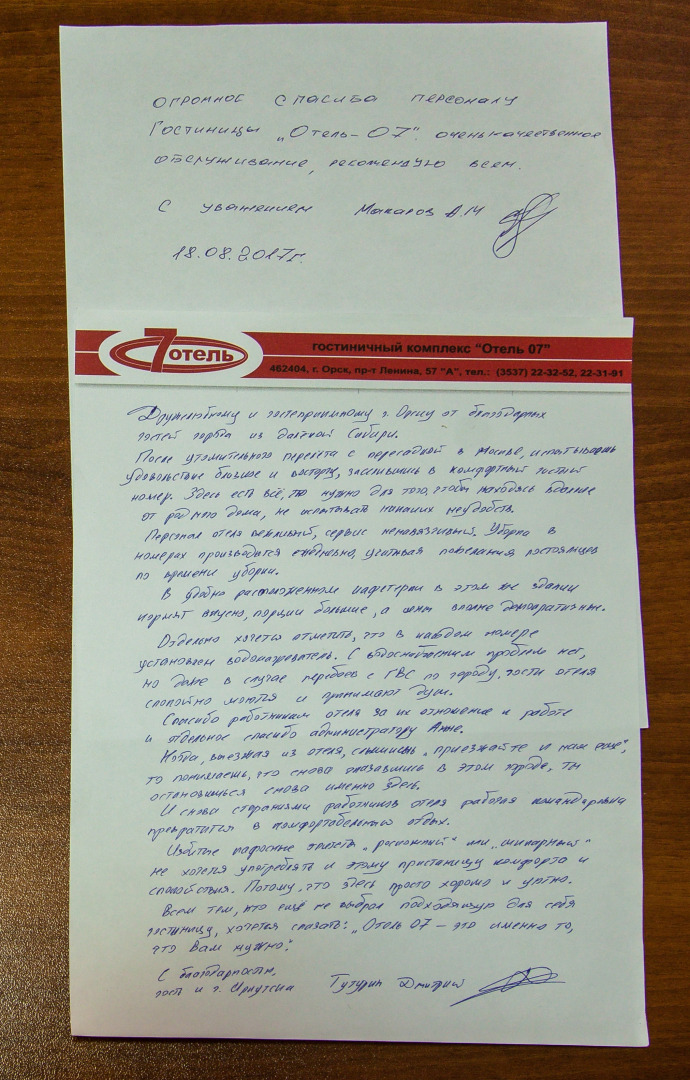 ОГРОМНОЕ СПАСИБА ПЕРСОНАЛУ
Гостиницы „Отель-07". очень качественное
обслуживание, рекомендую всем.
С уважением Макаров А.М
18.08.2017г.
7 отель
гостиничный комплекс "Отель 07"
462404, г. Орск, пр-т Ленина, 57 "А", тел.: (3537) 22-32-52, 22-31-91
Дружелюбному и гостеприимному г. Орску от благодарных
гостей города из далекой Сибири.
После утомительного перелета с пересадкой в Москве, испытываешь
удовольствие близкое к восторгу, заселившись в комфортный гостиный
номер. Здесь есть всё, что нужно для того, чтобы находясь вдалеке
от родного дома, не испытывать никаких неудобств.
Персонал отеля вежливый, сервис ненавязчивый. Уборка в
номерах производится ежедневно, учитывая пожелания постояльцев
по времени уборки.
В удобно расположенном кафетерии в этом же здании
кормят вкусно, порции большие, а цены вполне демократичные.
Отдельно хочется отметить, что в каждом номере
установлен водонагреватель. С водоснабжением проблем нет,
но даже в случае перебоев с ГВС по городу, гости отеля
спокойно моются и принимают душ.
Спасибо работникам отеля за их отношение к работе
и отдельное спасибо администратору Анне.
Когда, выезжая из отеля, слышишь „приезжайте к нам еще",
то понимаешь, что снова оказавшись в этом городе, ты
остановишься снова именно здесь.
И снова стараниями работников отеля рабочая командировка
превратится в комфортабельный отдых.
Избитые пафосные эпитеты „роскошный" или „шикарный"
не хочется употреблять к этому пристанищу комфорта и
спокойствия. Потому, что здесь просто хорошо и уютно.
Всем тем, кто ещё не выбрал подходящую для себя
гостиницу, хочется сказать: „Отель 07 – это именно то,
что Вам нужно".
С благодарностью,
гост из г. Иркутска Тутурин Дмитрий